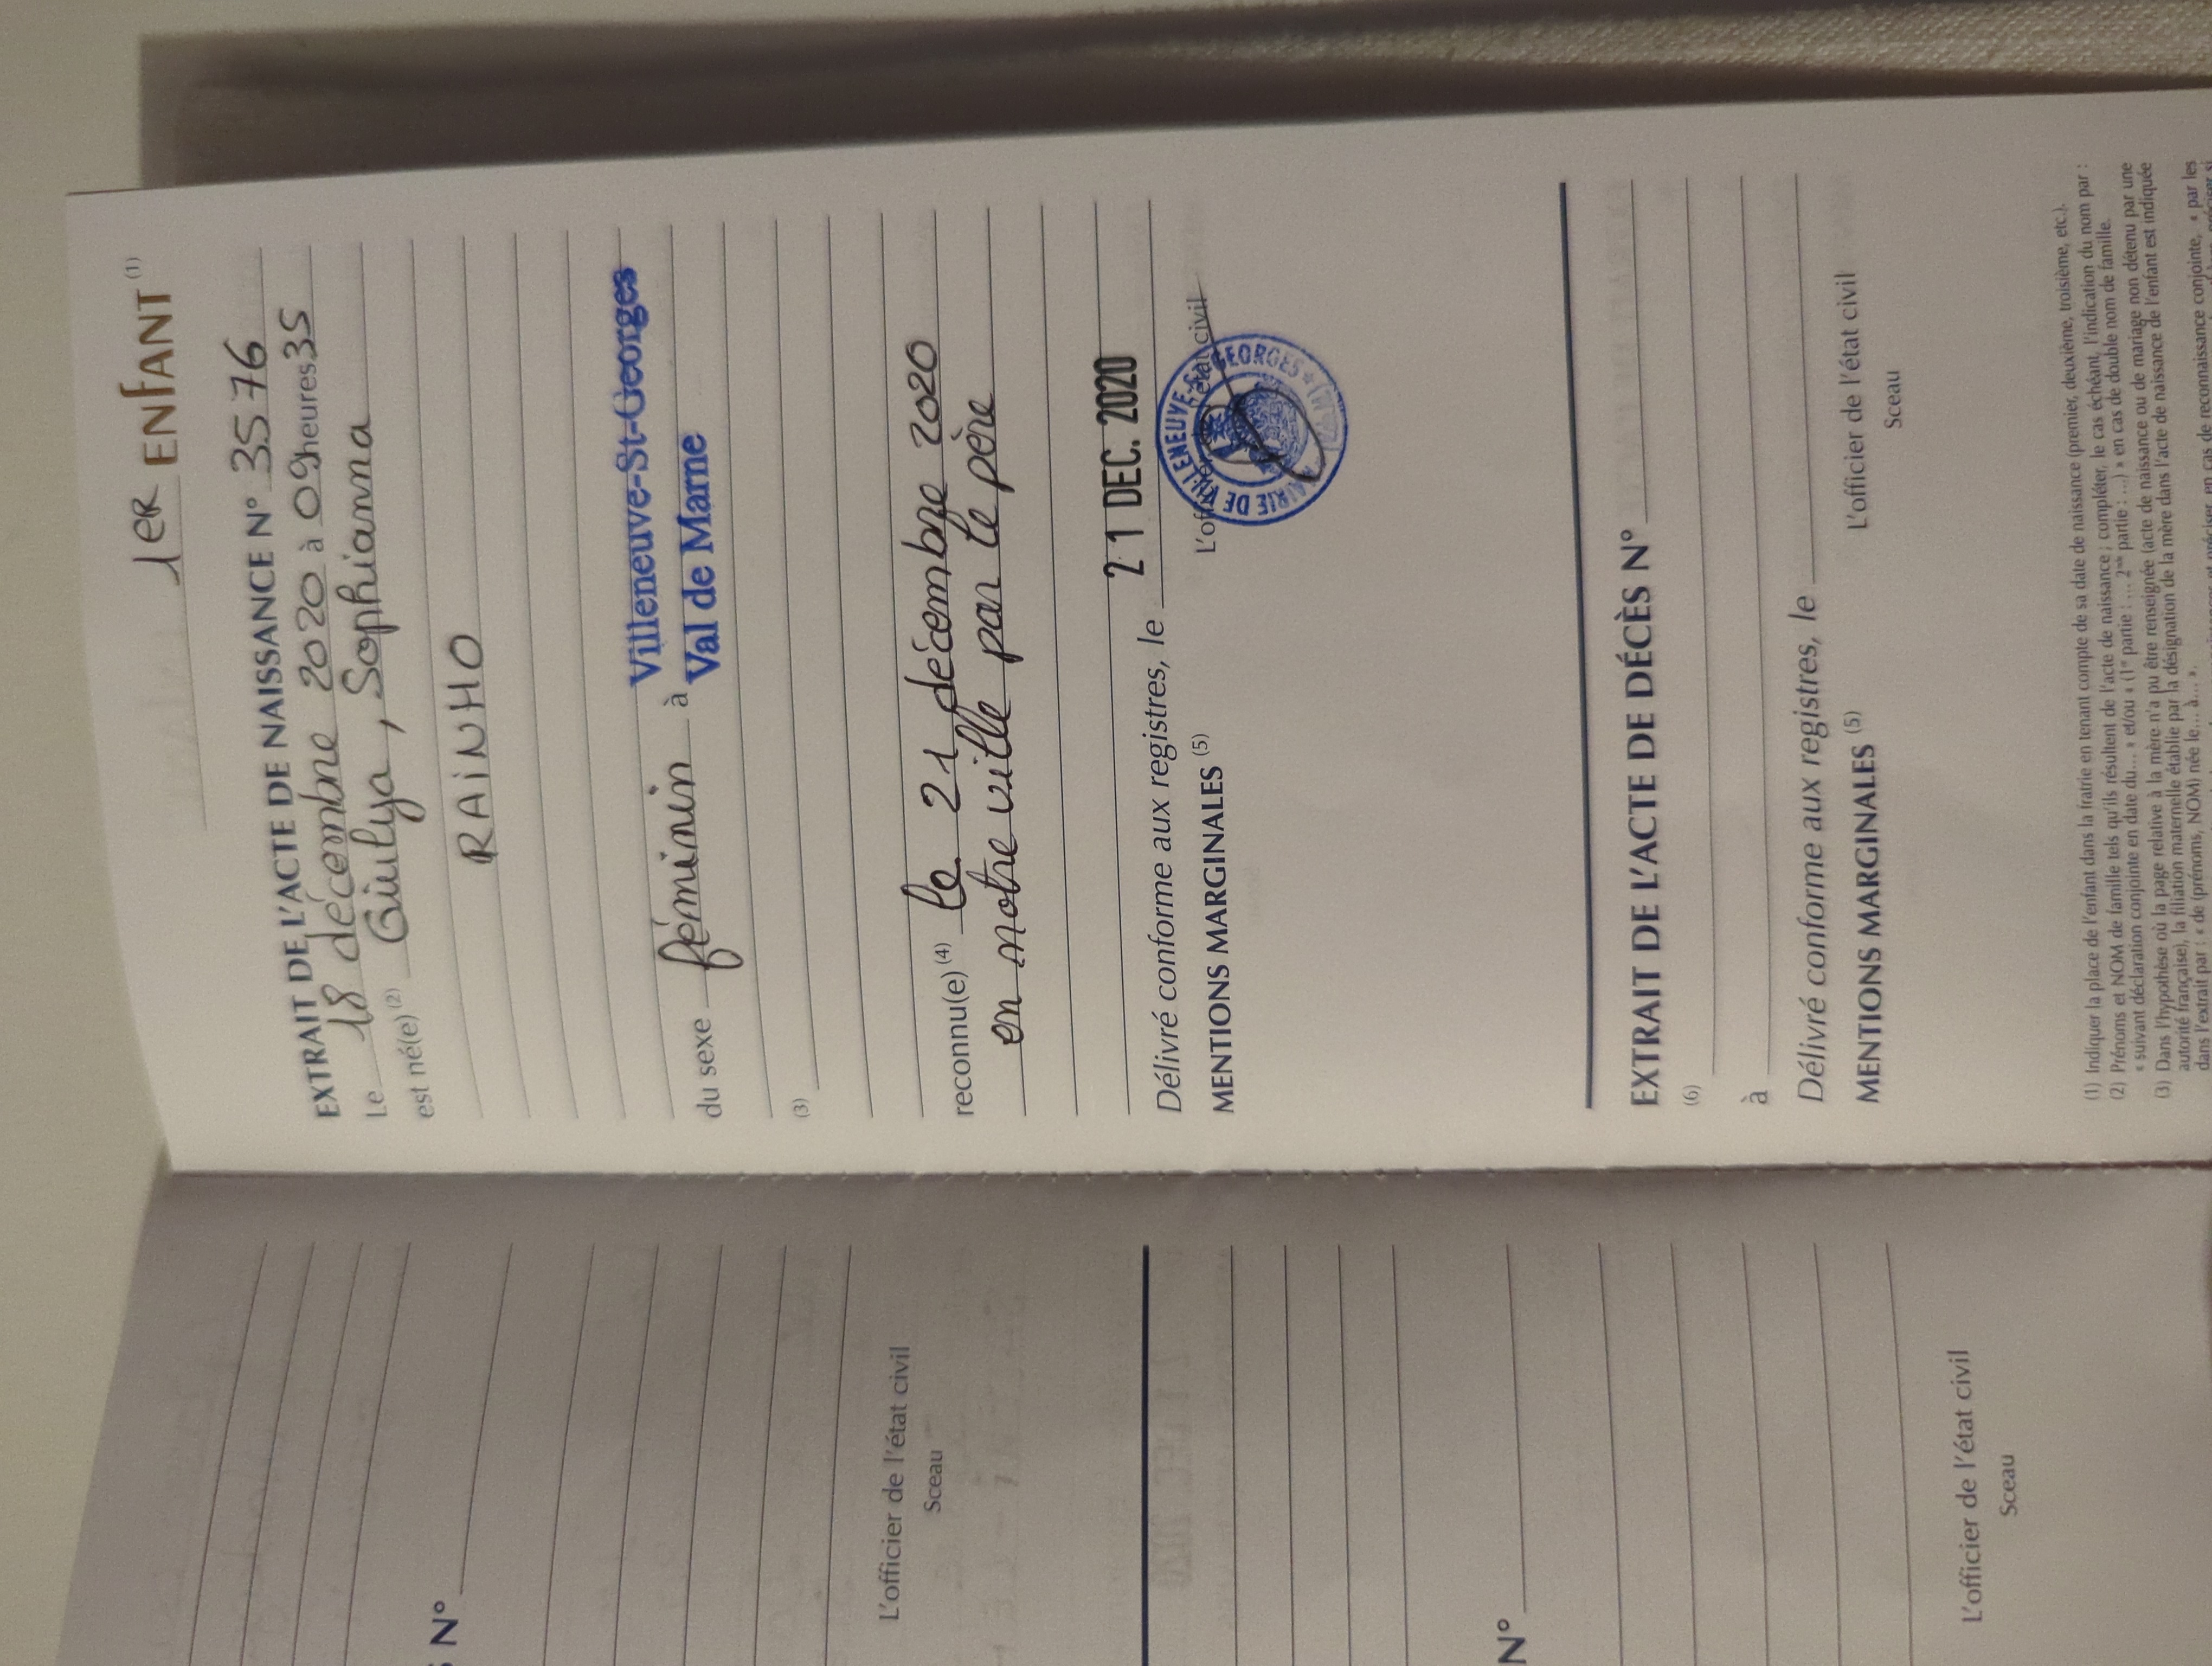 1ER ENFANT (1)
EXTRAIT DE L'ACTE DE NAISSANCE N° 3576
Le 18 décembre 2020 à 09 heures 35
est né(e) (2) Giulya, Sophianna
RAINHO
du sexe féminin à Villeneuve-St-Georges
Val de Marne
(3)
reconnu(e) (4) le 21 décembre 2020
en notre ville par le père
Délivré conforme aux registres, le 21 DEC. 2020
L'officier de l'état civil
MAIRIE DE VILLENEUVE-ST-GEORGES
MENTIONS MARGINALES (5)
EXTRAIT DE L'ACTE DE DÉCÈS N°
(6)
à
Délivré conforme aux registres, le
MENTIONS MARGINALES (5) L'officier de l'état civil
Sceau
(1) Indiquer la place de l'enfant dans la fratrie en tenant compte de sa date de naissance (premier, deuxième, troisième, etc.).
(2) Prénoms et NOM de famille tels qu'ils résultent de l'acte de naissance ; compléter, le cas échéant, l'indication du nom par :
« suivant déclaration conjointe en date du... » et/ou « (1re partie : ... 2nde partie : ...) » en cas de double nom de famille.
(3) Dans l'hypothèse où la page relative à la mère n'a pu être renseignée (acte de naissance ou de mariage non détenu par une
autorité française), la filiation maternelle établie par la désignation de la mère dans l'acte de naissance de l'enfant est indiquée
dans l'extrait par : « de (prénoms, NOM) née le... à... ».
en cas de reconnaissance conjointe, « par les
N°
L'officier de l'état civil
Sceau
N°
L'officier de l'état civil
Sceau